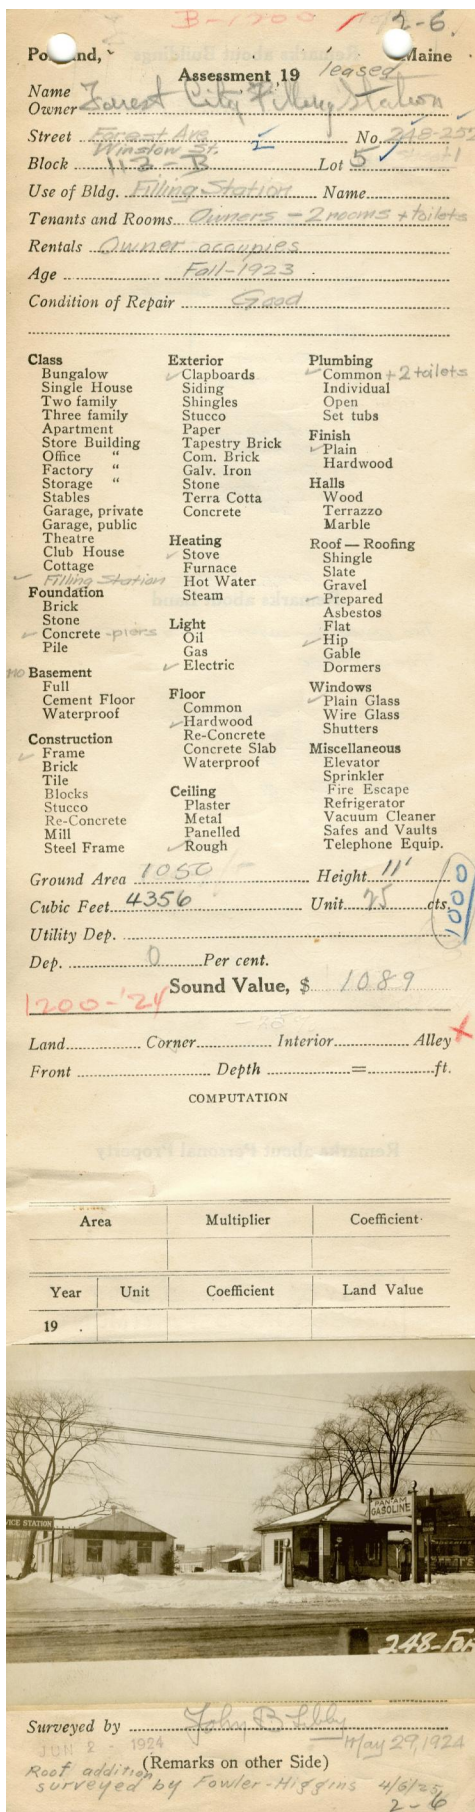 B-1200 / 2-6
Portland, Maine
Assessment 19 leased
Name
Owner Forest City Filling Station
Street Forest Ave No. 248-252
Winslow St. 2
Block 113-B Lot 5
Use of Bldg. Filling Station Name
Tenants and Rooms Owners - 2 rooms + toilets
Rentals Owner occupies
Age Fall-1923
Condition of Repair Good
Class
Bungalow
Single House
Two family
Three family
Apartment
Store Building
Office "
Factory "
Storage "
Stables
Garage, private
Garage, public
Theatre
Club House
Cottage
✓ Filling Station
Foundation
Brick
Stone
✓ Concrete -piers
Pile
no Basement
Full
Cement Floor
Waterproof
Construction
✓ Frame
Brick
Tile
Blocks
Stucco
Re-Concrete
Mill
Steel Frame
Exterior
✓ Clapboards
Siding
Shingles
Stucco
Paper
Tapestry Brick
Com. Brick
Galv. Iron
Stone
Terra Cotta
Concrete
Heating
✓ Stove
Furnace
Hot Water
Steam
Light
Oil
Gas
✓ Electric
Floor
Common
✓ Hardwood
Re-Concrete
Concrete Slab
Waterproof
Ceiling
Plaster
Metal
Panelled
✓ Rough
Plumbing
✓ Common + 2 toilets
Individual
Open
Set tubs
Finish
✓ Plain
Hardwood
Halls
Wood
Terrazzo
Marble
Roof — Roofing
Shingle
Slate
Gravel
✓ Prepared
Asbestos
Flat
✓ Hip
Gable
Dormers
Windows
✓ Plain Glass
Wire Glass
Shutters
Miscellaneous
Elevator
Sprinkler
Fire Escape
Refrigerator
Vacuum Cleaner
Safes and Vaults
Telephone Equip.
Ground Area 1050 Height 11'
Cubic Feet 4356 Unit 25 cts.
1000
Utility Dep.
Dep. 0 Per cent.
Sound Value, $ 1089
1200-'24
Land Corner Interior Alley X
Front Depth = ft.
COMPUTATION
Remarks about Personal Property
Area Multiplier Coefficient
Year Unit Coefficient Land Value
19
VICE STATION
PAN-AM
GASOLINE
248-FOR
Surveyed by John B Libby
JUN 2 - 1924 May 29, 1924
(Remarks on other Side)
Roof addition
surveyed by Fowler-Higgins 4/6/25
2-6